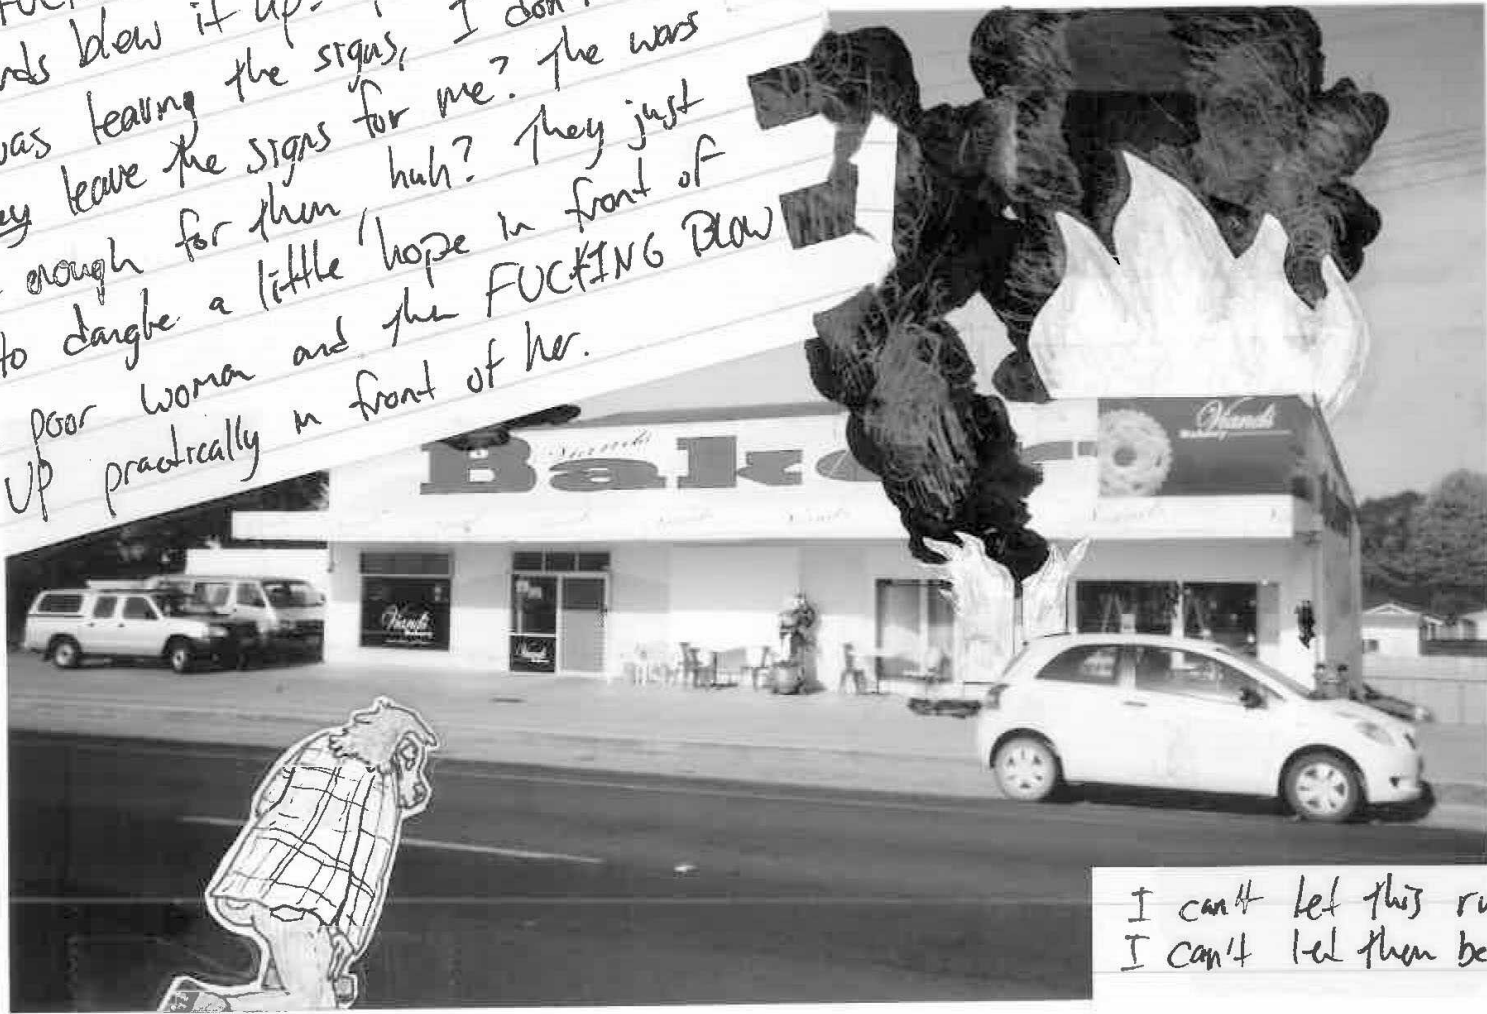 FUC
nds blew it up.
was leaving the signs, I don
ey leave the signs for me? The wars
enough for them, huh? They just
to dangle a little hope in front of
poor woman and then FUCKING BLOW
UP practically in front of her.
Viands
Bakery
Viands
Viands
Viands
I can't let this ru
I can't let them be